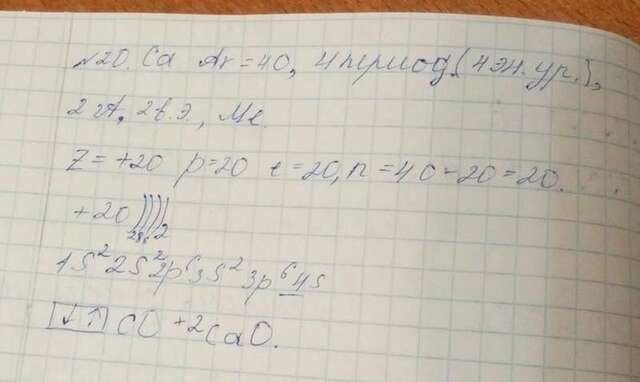 №20. Ca Ar = 40, 4 период (4 эн. ур.),
2 гр. A, 2 в. э., Ме.
Z = +20 p = 20 e = 20, n = 40 - 20 = 20.
+20 ))))
2 8 8 2
1s² 2s² 2p⁶ 3s² 3p⁶ 4s
↓↑ CO +2 CaO.